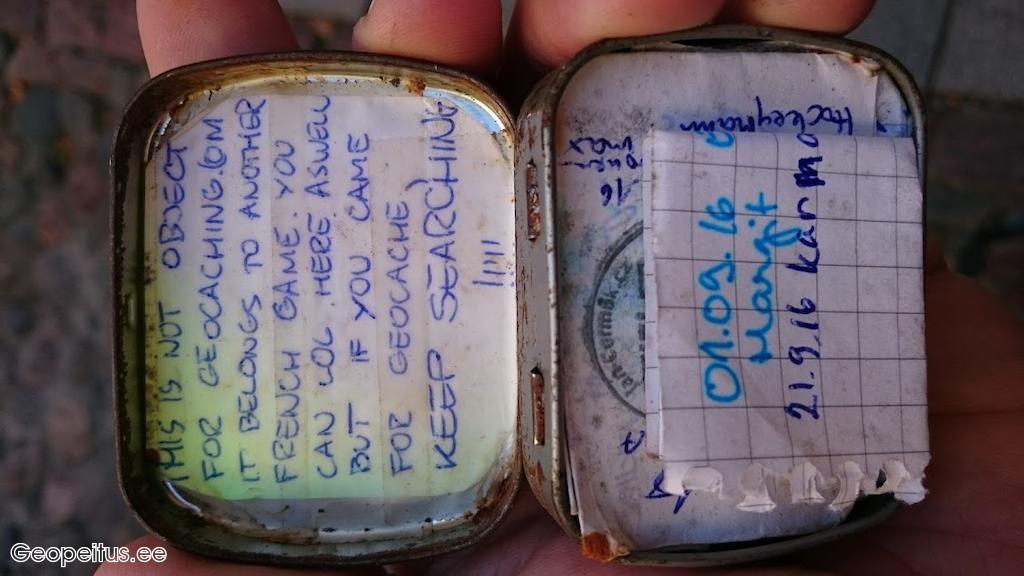 THIS IS NOT OBJECT
FOR GEOCACHING.COM
IT BELONGS TO ANOTHER
FRENCH GAME. YOU
CAN LOL HERE ASWELL
BUT IF YOU CAME
FOR GEOCACHE
KEEP SEARCHING
!!!!
Hockeymann
16
01.09.16
Margit
21.9.16 karmo
Geopeitus.ee